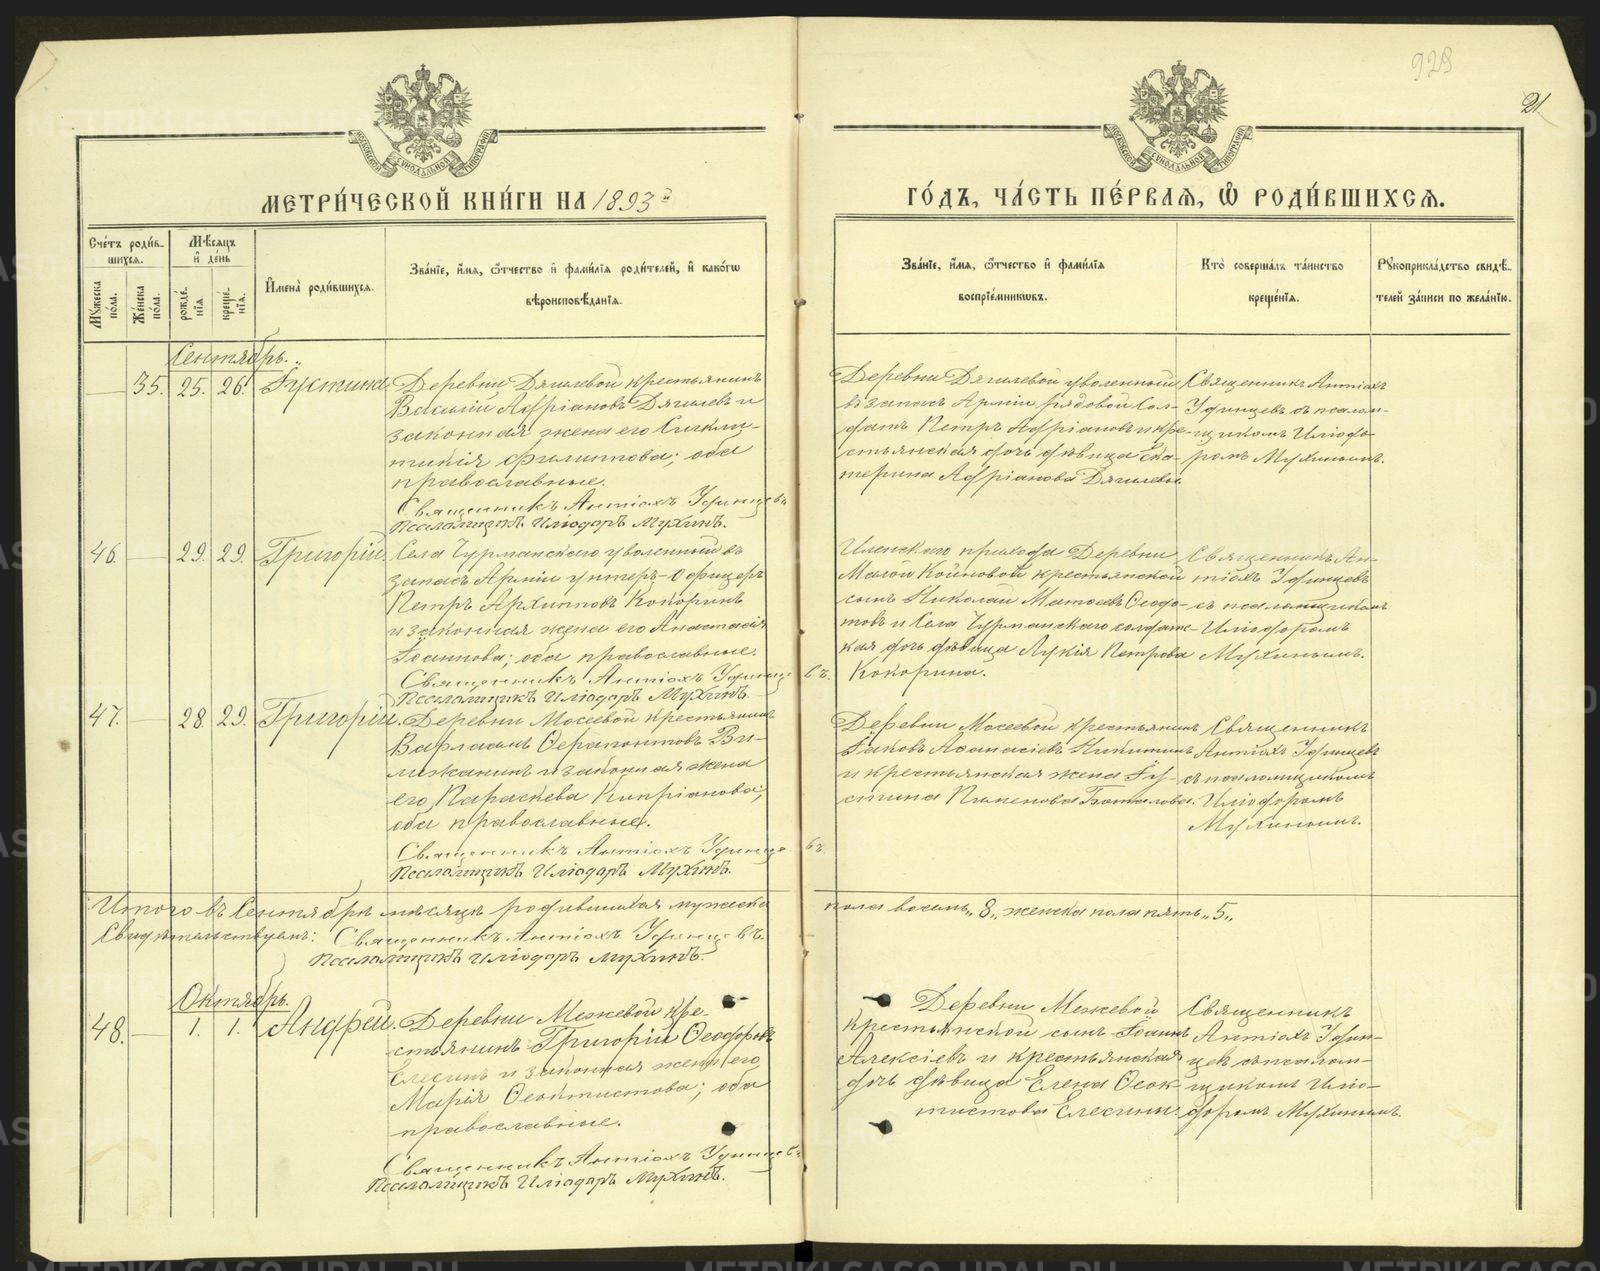 929
21
МЕТРИ́ЧЕСКОЙ КНИ́ГИ НА 1893й
ГО́ДЪ, ЧА́СТЬ ПЕ́РВАЯ, Ѡ РОДИ́ВШИХСЯ.
Сче́тъ роди́в-
шихся.
Мѣ́сяцъ
и҆ де́нь
Мꙋ́жеска по́ла.
Же́нска по́ла.
рожде́-
нїѧ.
креще́-
нїѧ.
И҆мена̀ роди́вшихсѧ.
Зва́нїе, и҆́мѧ, ѻ҆́тчество и҆ фами́лїѧ роди́телей, и҆ како́гѡ
вѣроисповѣ́данїѧ.
Зва́нїе, и҆́мѧ, ѻ҆́тчество и҆ фами́лїѧ
воспрїе́мникѡвъ.
Кто̀ соверша́лъ та́инство
креще́нїѧ.
Рꙋкоприкла́дство свидѣ́-
телей за́писи по жела́нїю.
Сентябрь.
35. 25. 26. Іустина
Деревни Дягилевой крестьянинъ
Василій Адріановъ Дягилевъ и
законная жена его Синкли-
тикія Филиппова; оба
православные.
Священникъ Антіохъ Удинцевъ
Псаломщикъ Иліодоръ Мухинъ.
Деревни Дягилевой уволенный
въ запасъ Арміи рядовой Сол-
датъ Петръ Адріановъ и кре-
стьянская дочь дѣвица Ека-
терина Адріанова Дягилевы
Священникъ Антіохъ
Удинцевъ съ псалом-
щикомъ Иліодо-
ромъ Мухинымъ.
46. 29. 29. Григорій.
Села Чурманскаго уволенный въ
запасъ Арміи унтеръ-Офицеръ
Петръ Архиповъ Кокоринъ
и законная жена его Анастасія
Іоаннова; оба православные.
Священникъ Антіохъ Удинцевъ.
Псаломщикъ Иліодоръ Мухинъ.
прихода Деревни
Малой Койновой крестьянской
сынъ Николай Матѳеевъ Ѳедо-
товъ и Села Чурманскаго солдатс-
кая дочь дѣвица Лукія Петрова
Кокорина.
Священникъ Ан-
тіохъ Удинцевъ
съ псаломщикомъ
Иліодоромъ
Мухинымъ.
47. 28. 29. Григорій.
Деревни Мосеевой крестьянинъ
Варлаамъ Ѳерапонтовъ Ви-
лижанинъ и законная жена
его, Параскева Кипріанова;
оба православные.
Священникъ Антіохъ Удинцевъ.
Псаломщикъ Иліодоръ Мухинъ.
Деревни Мосеевой крестьянинъ
Іаковъ Аѳанасіевъ Никитинъ
и крестьянская жена Іу-
стина Пименова
Священникъ
Антіохъ Удинцевъ
съ псаломщикомъ
Иліодоромъ
Мухинымъ.
Итого въ Сентябрѣ мѣсяцѣ родившихся мужеска
пола восемь „8„ женска пола пять „5„
Свидѣтельствуемъ: Священникъ Антіохъ Удинцевъ.
Псаломщикъ Иліодоръ Мухинъ.
Октябрь.
48. 1. 1. Андрей.
Деревни Межевой кре-
стьянинъ Григорій Ѳеодоровъ
Елесинъ и законная жена его
Марія Ѳеоктистова; оба
православные.
Священникъ Антіохъ Удинцевъ
Псаломщикъ Иліодоръ Мухинъ.
Деревни Межевой
крестьянской сынъ Іоаннъ
Алексіевъ и крестьянская
дочь дѣвица Елена Ѳеок-
тистова Елесины
Священникъ
Антіохъ Удин-
цевъ съ псалом-
щикомъ Иліо-
доромъ Мухинымъ.